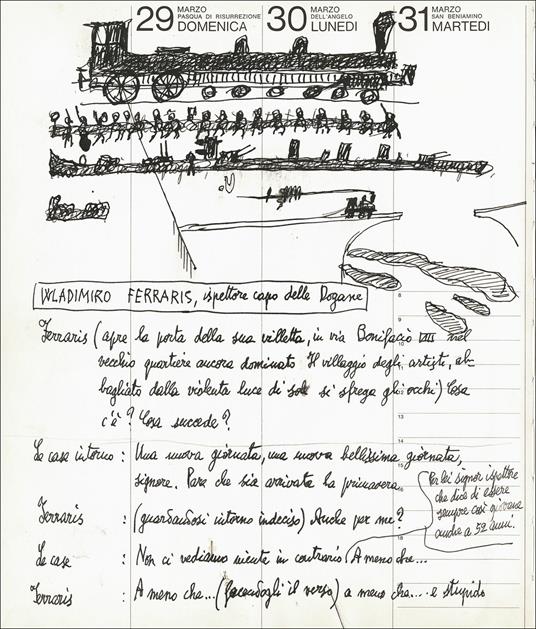 29 MARZO PASQUA DI RISURREZIONE DOMENICA
30 MARZO DELL'ANGELO LUNEDI
31 MARZO SAN BENIAMINO MARTEDI
WLADIMIRO FERRARIS, ispettore capo delle Dogane
8
Ferraris (apre la porta della sua villetta, in via Bonifacio VIII nel
vecchio quartiere ancora dominato Il villaggio degli artisti, ab-
bagliato dalla violenta luce di sole si sfrega gli occhi) Cosa
12
c'è? Cosa succede?
13
14
Le case intorno: Una nuova giornata, una nuova bellissima giornata,
15
signore. Pare che sia arrivata la primavera
Per lei signor ispettore
che dice di essere
sempre così giovane
anche a 52 anni.
Ferraris : (guardandosi intorno indeciso) Anche per me?
18
Le case : Non ci vediamo niente in contrario A meno che...
Ferraris : A meno che... (facendogli il verso) a meno che... e stupido